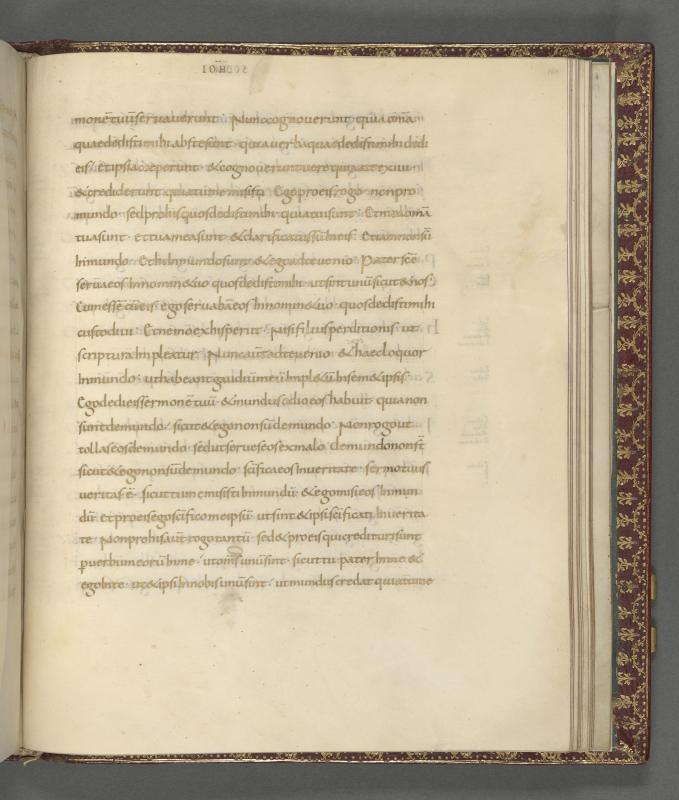 monē tuū servaverunt · Nunc cognoverunt quia omā
quae dedisti mihi abs te sunt · quia verba quae dedisti mihi dedi
eis · et ipsi acceperunt · & cognoverunt vere quia a te exivi
& crediderunt quia tu me misisti · Ego pro eis rogo non pro
mundo · sed pro his quos dedisti mihi quia tui sunt · Et mea omā
tua sunt · et tua mea sunt · & clarificatus sū in eis · Et iam non sū
in mundo · Et hi in mundo sunt · & ego ad te venio · Pater scē
serva eos in nomine tuo quos dedisti mihi · ut sint unū sicut & nos ·
Cum essē cū eis ego servabā eos in nomine tuo · quos dedisti mihi
custodivi · Et nemo ex his periit · nisi filius perditionis ut
scriptura impleatur · Nunc aū ad te venio · & haec loquor
in mundo · ut habeant gaudiū meū impl&ū in sem&ipsis ·
Ego dedi eis sermonē tuū · & mundus odio eos habuit quia non
sunt de mundo · sicut & ego non sū de mundo · Non rogo ut
tollas eos de mundo · sed ut serves eos ex malo · de mundo non st̄
sicut & ego non sū de mundo · scīfica eos in veritate · sermo tuus
veritas ē · sicut tu me misisti in mundū · & ego misi eos in mun
dū · et pro eis ego scīfico me ipsū · ut sint & ipsi scīficati in verita
te · Non pro his aūt rogo tantū · sed & pro eis qui credituri sunt
p verbum eorū in me · ut om̄s unū sint · sicut tu pater in me &
ego in te · ut & ipsi in nobis unū sint · ut mundus credat quia tu me